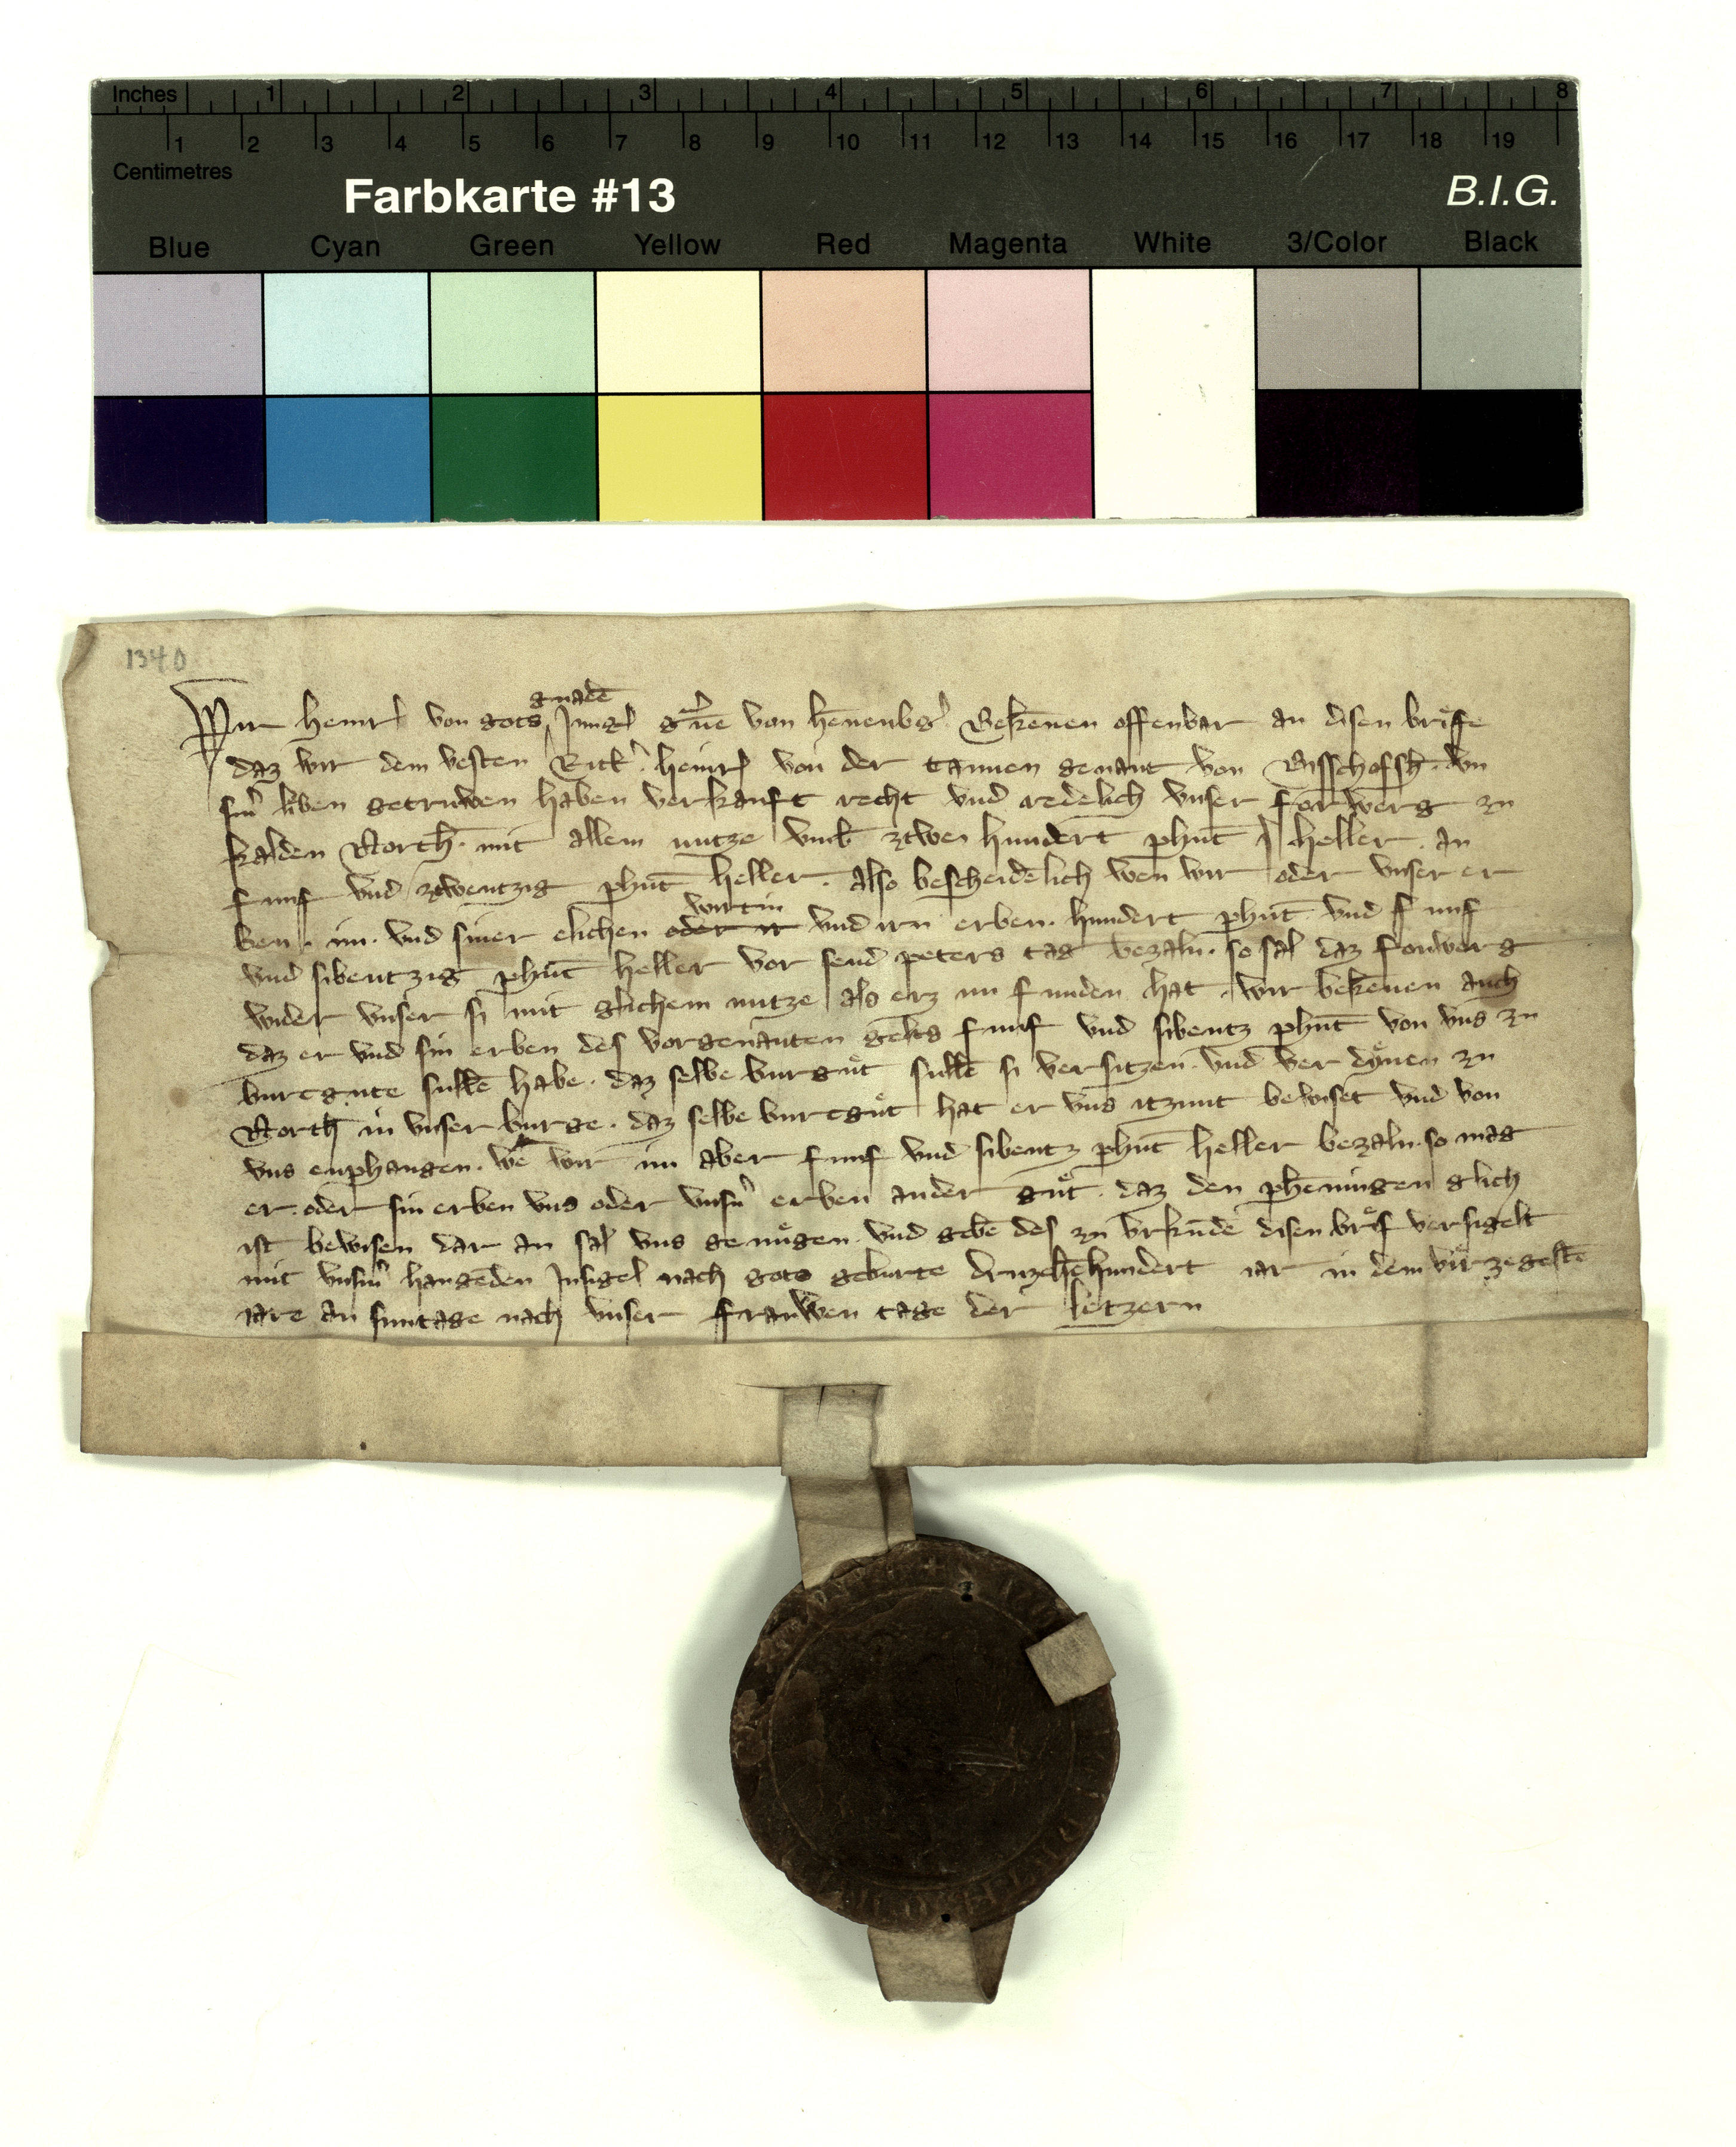 Inches 1 2 3 4 5 6 7 8
1 2 3 4 5 6 7 8 9 10 11 12 13 14 15 16 17 18 19
Centimetres
Farbkarte #13 B.I.G.
Blue Cyan Green Yellow Red Magenta White 3/Color Black
1340
gnadē
Wir heinr von gots Jungͤ gͣue von hēnenbg Bekēnen offenbar an disen brife
daz wir dem vesten heinr von der tannen genant von Bisschofsh̄. vn
sinͥ liben getruwen haben verkauft recht vnd redelich vnser forwerg zu
kalden North̄. mit allem nutze vmb ztwen hundert phūt heller. an
funf vnd ztwentzig phūt heller. also bescheidelich wen wir oder vnser er
wirtin
ben. im. vnd siner elichen oder ir vnd irn erben. hundert phūt vnd funf
vnd sibentzig phūt heller vor send peters tag bezaln. so sal daz forwerg
wider vnser si mit glichem nutze als erz im funden hat. wir bekēnen auch
daz er vnd sin erben des vorgenanten gelts funf vnd sibentz phūt von vns zu
burcgute sullē habe. daz selbe burguͤt sullē si versitzen. vnd ver dynen zu
North̄ in vnser burge. daz selbe burcguͤt hat er vns itzunt bewiset vnd von
vns enphangen. wē wir im aber funf vnd sibentz phūt heller bezaln. so mag
er. oder sin erben vns oder vnsn erben ander guͤt. daz den phēningen glich
ist bewisen dar an sal vns genuͤgen. vnd gebē des zu vrkūde disen brif versigelt
mit vnsm hangēden Jnsigel nach gots geburte druzehēhundert iar in dem virzegestē
iare an suntage nach vnser frauwen tage der letzern